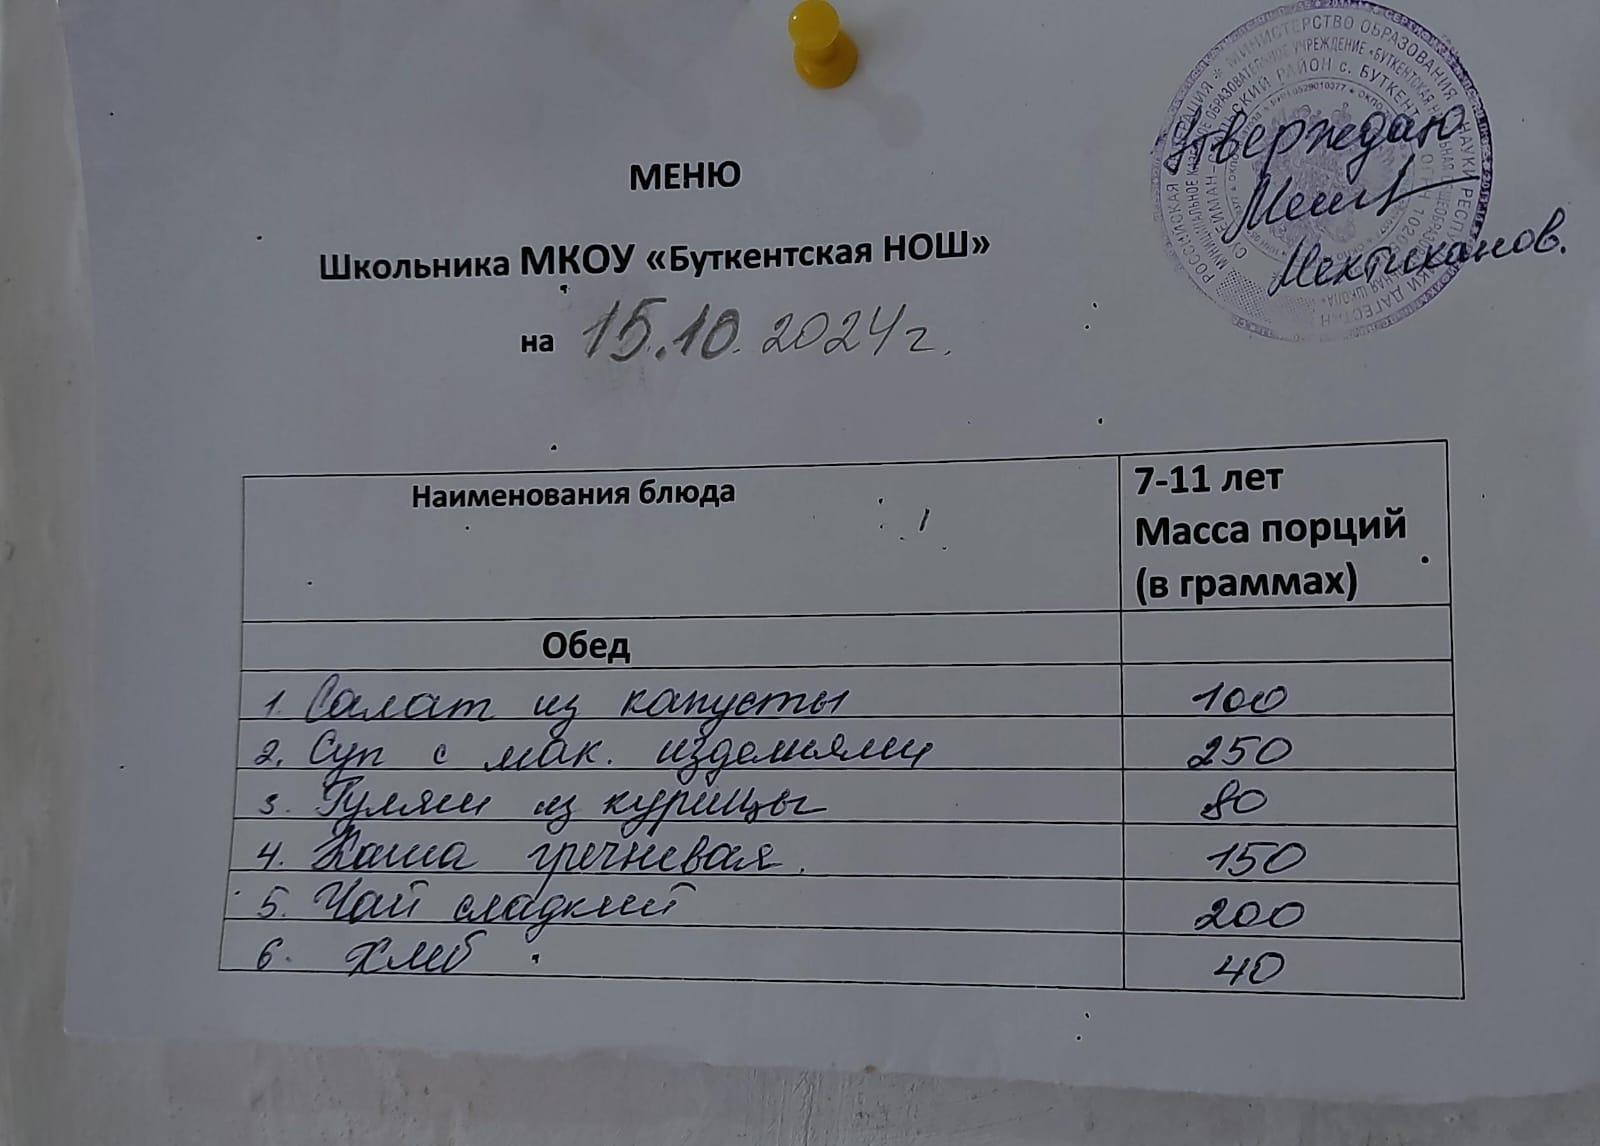 МЕНЮ
Школьника МКОУ «Буткентская НОШ»
на 15.10.2024г.
Утверждаю
Мехтиханов.
МИНИСТЕРСТВО ОБРАЗОВАНИЯ НАУКИ
РАЙОН с. БУТКЕНТ
Наименования блюда
7-11 лет
Масса порций
(в граммах)
Обед
1. Салат из капусты 100
2. Суп с мак. изделиями 250
3. Гуляш из курицы 80
4. Каша гречневая. 150
5. Чай сладкий 200
6. Хлеб 40